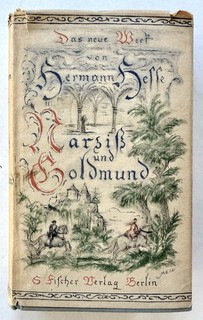 Das neue Werk
von
Hermann Hesse
Narziß
und
Goldmund
S. Fischer Verlag Berlin